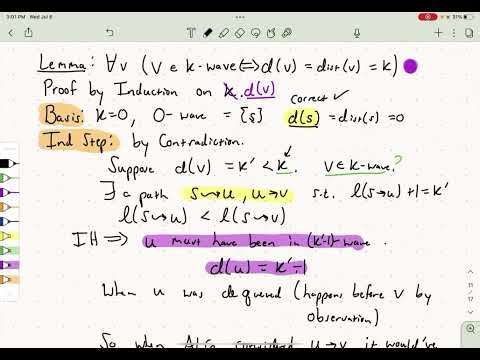 3:01 PM Wed Jul 6
31%
Lemma: ∀v (v ∈ k-wave ⟺ d(v) = dist(v) = k)
Proof by Induction on k. d(v)
correct ✓
Basis: k=0, 0-wave = {s} d(s) = dist(s) = 0
Ind Step: by Contradiction.
Suppose d(v) = k' < k. v ∈ k-wave.?
∃ a path s⇝u, u→v s.t. l(s⇝u)+1=k'
l(s⇝u) < l(s⇝v)
IH ⟹ u must have been in (k'-1)-wave.
d(u) = k'-1
When u was dequeued (happens before v by
observation)
So when Alg considered u→v it would've
11
17